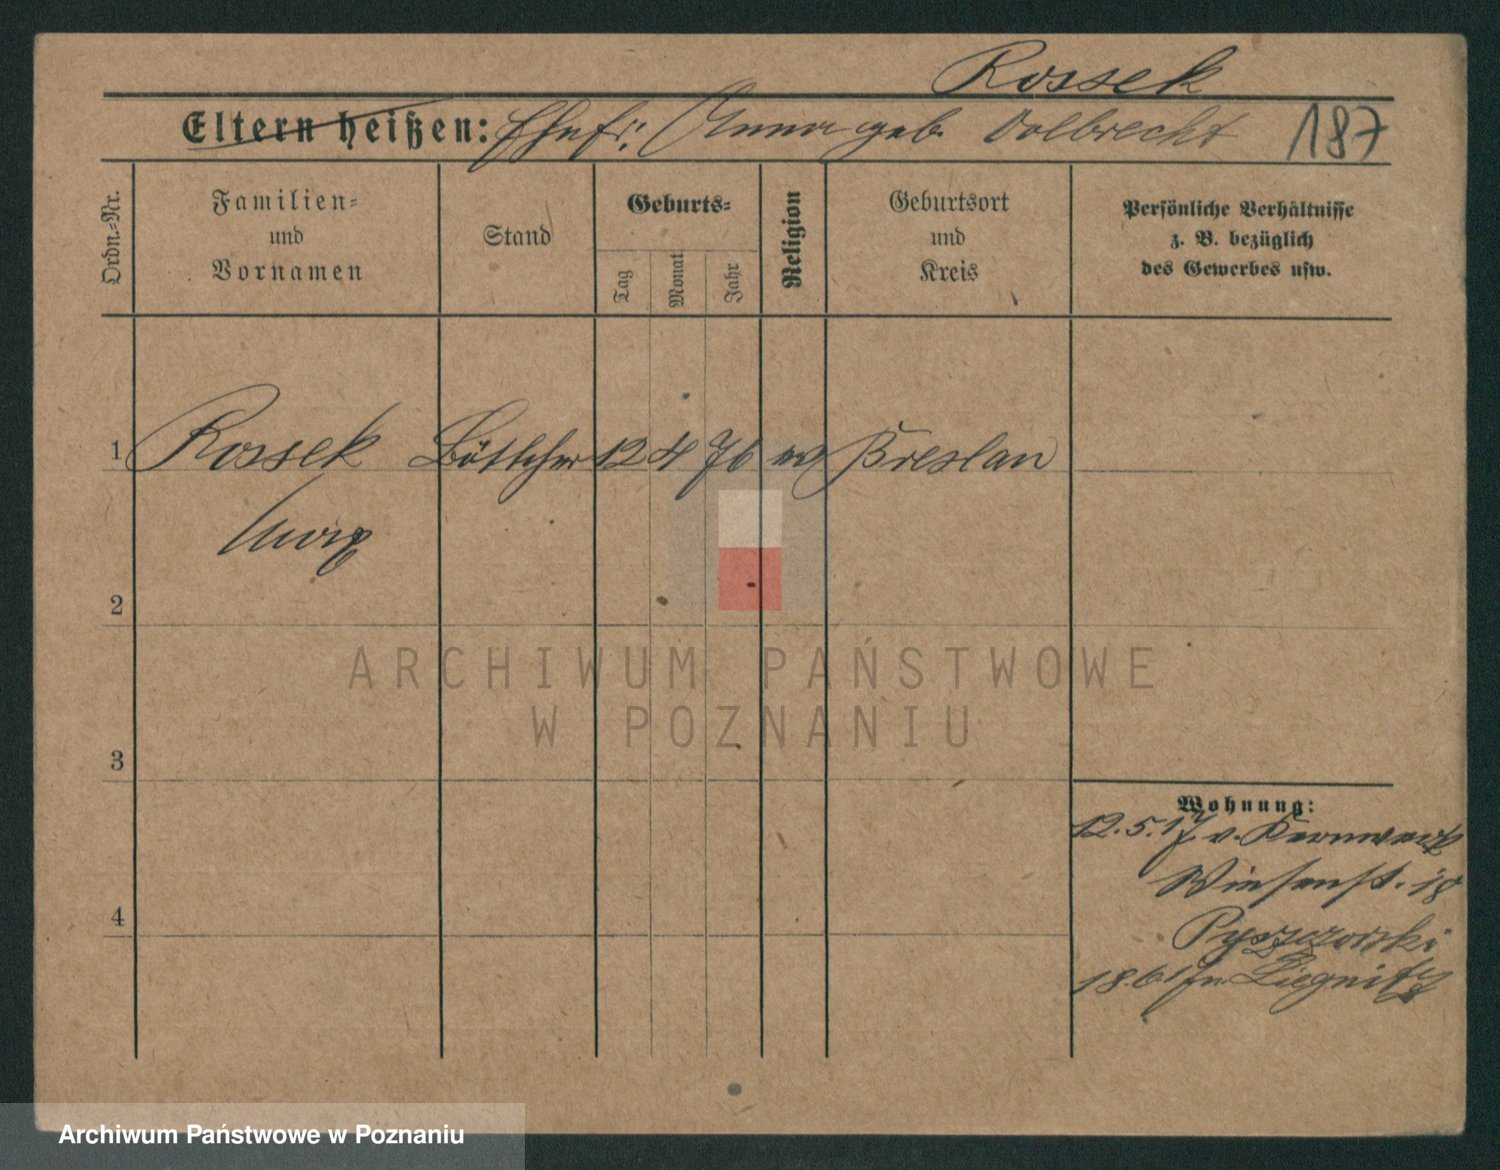 Rossek
Eltern heißen: Ehefr: Anna geb. Volbrecht 187
Ordn.-Nr.
Familien-
und
Vornamen
Stand
Geburts-
Tag
Monat
Jahr
Religion
Geburtsort
und
Kreis
Persönliche Verhältnisse
z. B. bezüglich
des Gewerbes usw.
1 Rossek Böttcher 12 4 76 Breslau
2
3
4
Wohnung:
12.5.17 v. Kernwerk
Wiesenst. 18
Pyszczorski
18.6.17 n. Liegnitz
ARCHIWUM PAŃSTWOWE
W POZNANIU
Archiwum Państwowe w Poznaniu